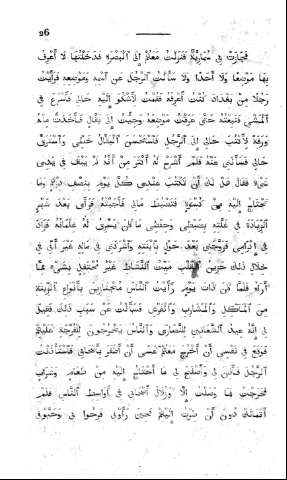 96
فجازت في سمارية فنزلت معهم إلى البصرة فدخلتها لا أعرف
بها موضعا ولا أحدا ولا سألت الرجل عن اسمه وموضعه فرأيت
رجلا من بغداد كنت أعرفه فقمت لأشكو إليه حالي فأسرع في
المشي فتبعته حتى عرفت موضعه وجئت إلى بقال فأخذت منه
ورقة لأكتب حالي إلى الرجل فاستحسن البقال خطي واسترق
حالي فسألني عنه فلم أشرح له أكثر من أنه لم يبق في يدي
شيء فقال قد لك أن تكتب عندي كل يوم بنصف درهم وما
تحتاج إليه من كسوة فتضبط مالي فأجبته فرأى بعد شهر
الزيادة في غلته بضبطي وحفظي ما كان يسرق له غلمانه فزاد
في إكرامي فزوجني بعد حول بابنته وأشركني في ماله غير أني في
خلال ذلك حزين القلب ميت النشاط غير محتفل بشيء مما
أراه فلما كان ذات يوم رأيت الناس مجتازين بأنواع الزينة
من المآكل والمشارب والفرش فسألت عن سبب ذلك فقيل
لي إنه عيد الشعانين للنصارى والناس يخرجون للفرجة عليهم
فوقع في نفسي أن أخرج معهم عسى أن أظفر بأصحابي فاستأذنت
الرجل فأذن لي وأصلح لي ما أحتاج إليه من طعام وشراب
فخرجت فما وصلت إلا وزلال أصحابي في أواسط الناس فلم
أتمالك دون أن طرت إليهم فحين رأوني فرحوا بي وضجوا